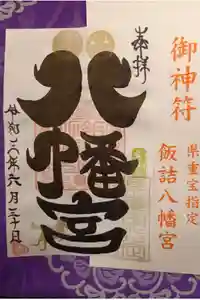 御神符
県重宝指定
飯詰八幡宮
奉拝
八幡宮
令和二年六月二十日